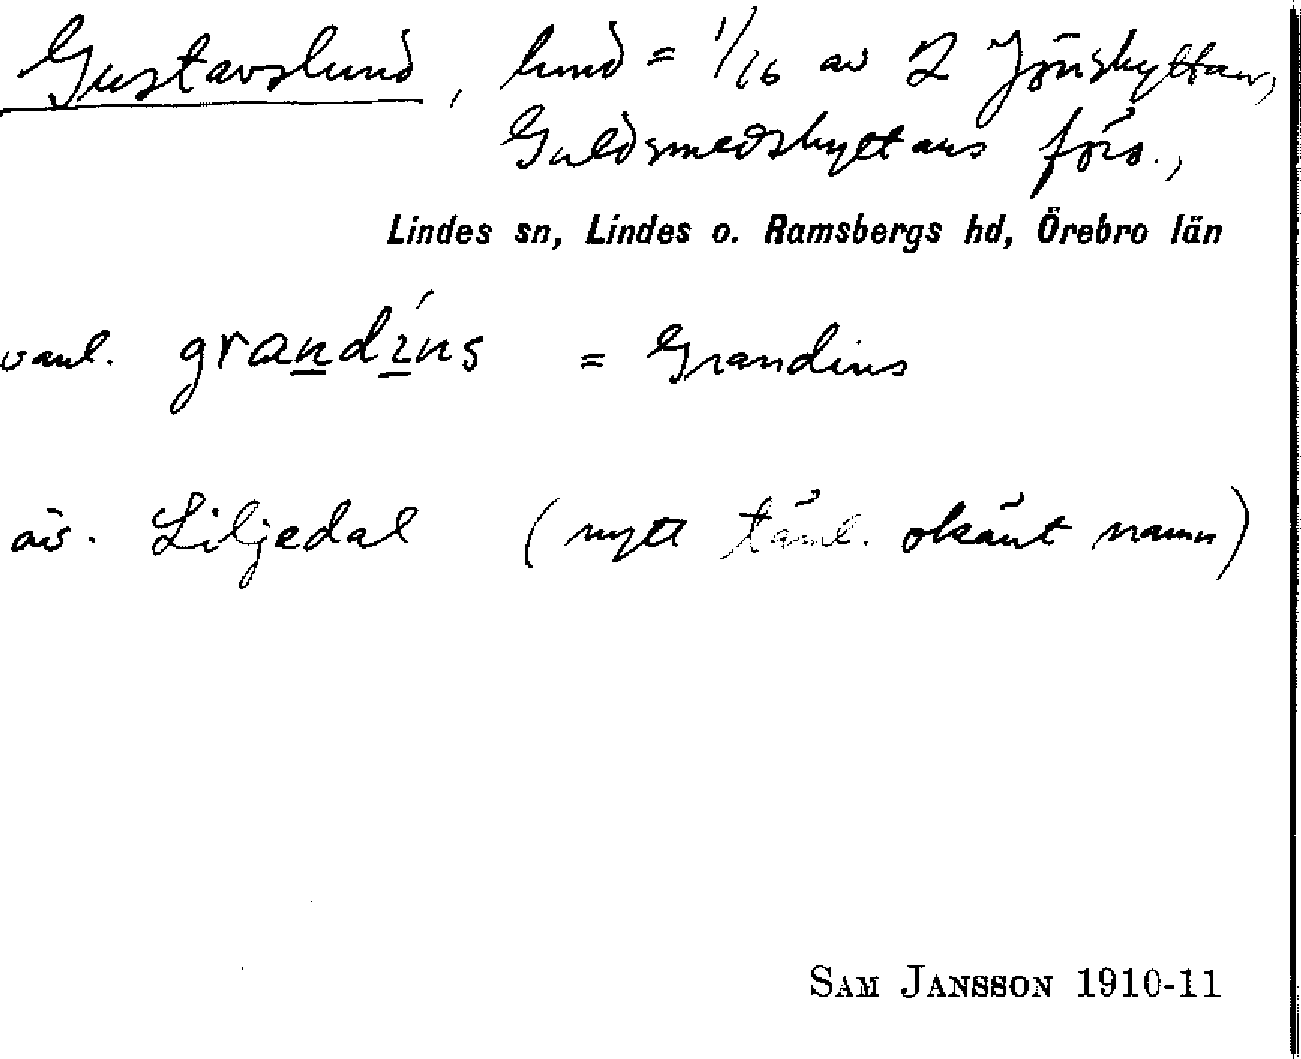 Gustavslund, hmd = 1/16 av 2 Jönshyttan,
Guldsmedshyttans förs.,
Lindes sn, Lindes o. Ramsbergs hd, Örebro län
vanl. grandíns = Grandins
äv. Liljedal (nytt täml. okänt namn)
SAM JANSSON 1910-11